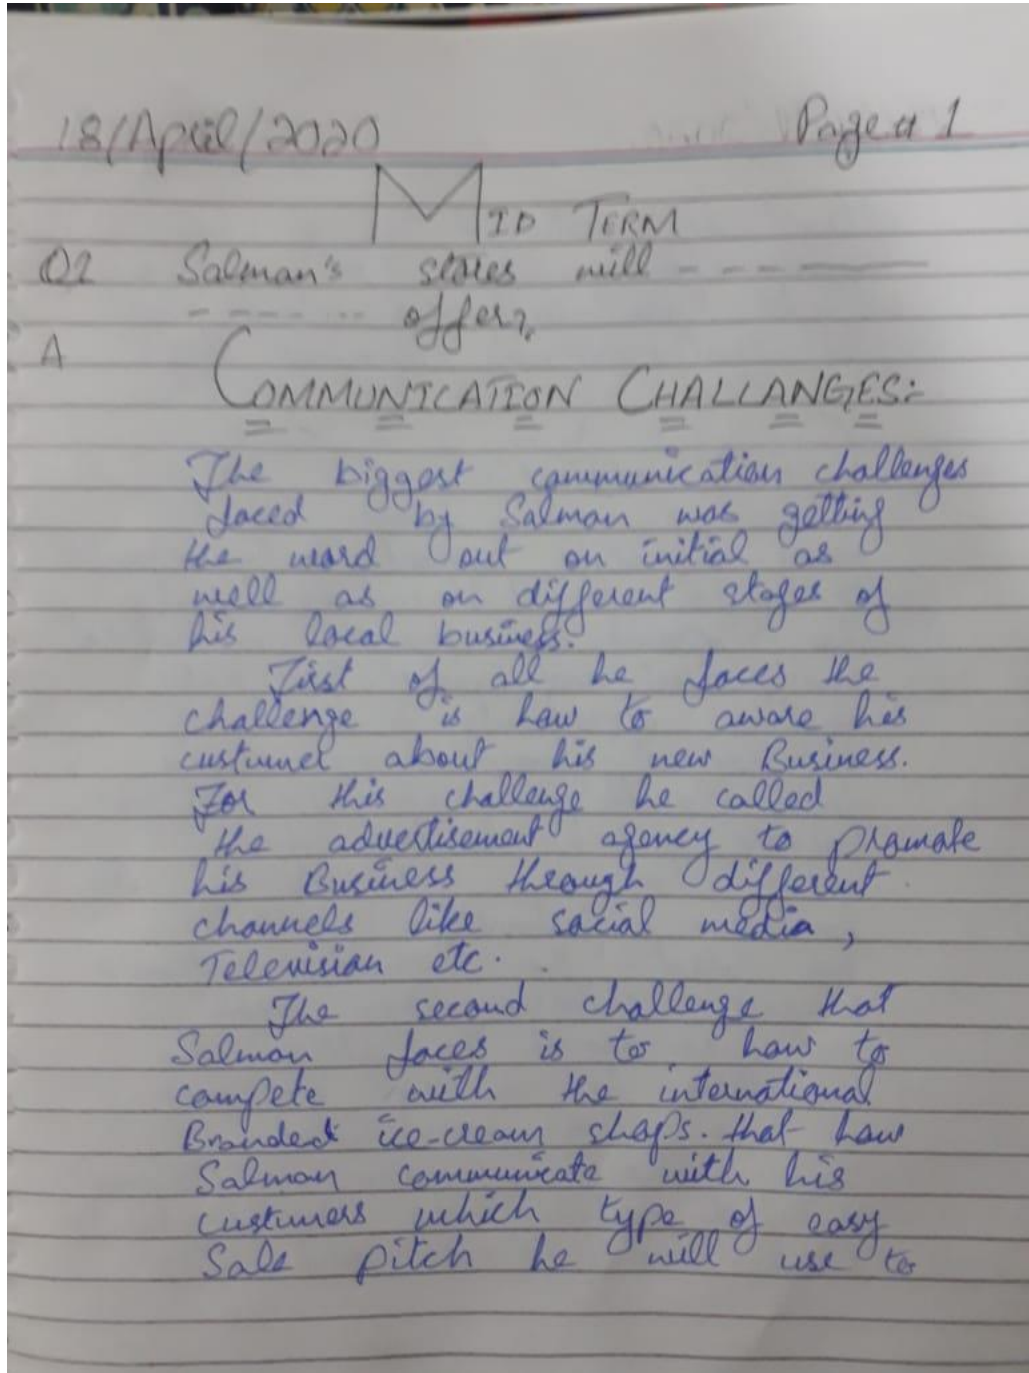 18/April/2020 Page # 1
MID TERM
Q2 Salman's stores will - - - ———
- - - - - - - - offer?
A
COMMUNICATION CHALLANGES:-
The biggest communication challenges
faced by Salman was getting
the word out on initial as
well as on different stages of
his local business.
First of all he faces the
challenge is how to aware his
custumer about his new Business.
For this challenge he called
the advertisement agency to promote
his Business through different
channels like social media,
Television etc.
The second challenge that
Salman faces is to how to
compete with the international
Branded ice-cream shops. that how
Salman communicate with his
custumers which type of easy
Sale pitch he will use to